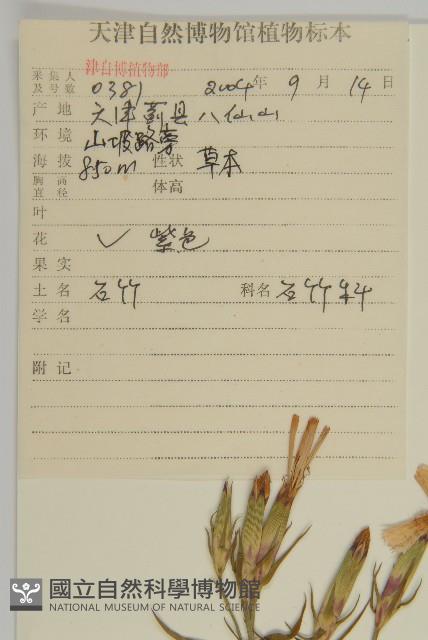 天津自然博物馆植物标本
津自博植物部
采集人
及号数 0381 2004年 9 月 14 日
产地 天津蓟县八仙山
环境 山坡路旁
海拔 850m 性状 草本
胸高
直径 体高
叶
花 ✓ 紫色
果实
土名 石竹 科名 石竹科
学名
附记
國立自然科學博物館
NATIONAL MUSEUM OF NATURAL SCIENCE